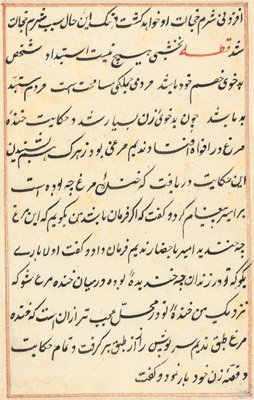 افزونی شرم خجالت او خواهد گشت و تنک این حال سبب شرم خجالت
شد قطعه بخشی هیچ نیست استبداد شخص
بدخوی خصم خود باشد مردمی چابکی مسامحت است مرد مستبد
بد باشد چون بدخوی زن بسیار شد و حکایت خنده
مرغ در افواه افتاد و ندیم مرغی بود زیرک بشنیدن
این حکایت دریافت که خنده مرغ چه بوده است
برابر پیغام کرد و گفت که اگر فرمان باشد من بگویم که این مرغ
چه خندید امیر باحضار ندیم فرمان داد و گفت اولا بارے
بگو که تو در زندان چه خندیده بوده درمیان خنده مرغ شنو که
نزدیک من خنده تو در محل عجب تر ازان است که خنده
مرغ طبق ندیم سرپوش راز از طبق بر گرفت و تمام حکایت
و قصه زن خود باز نمود و گفت